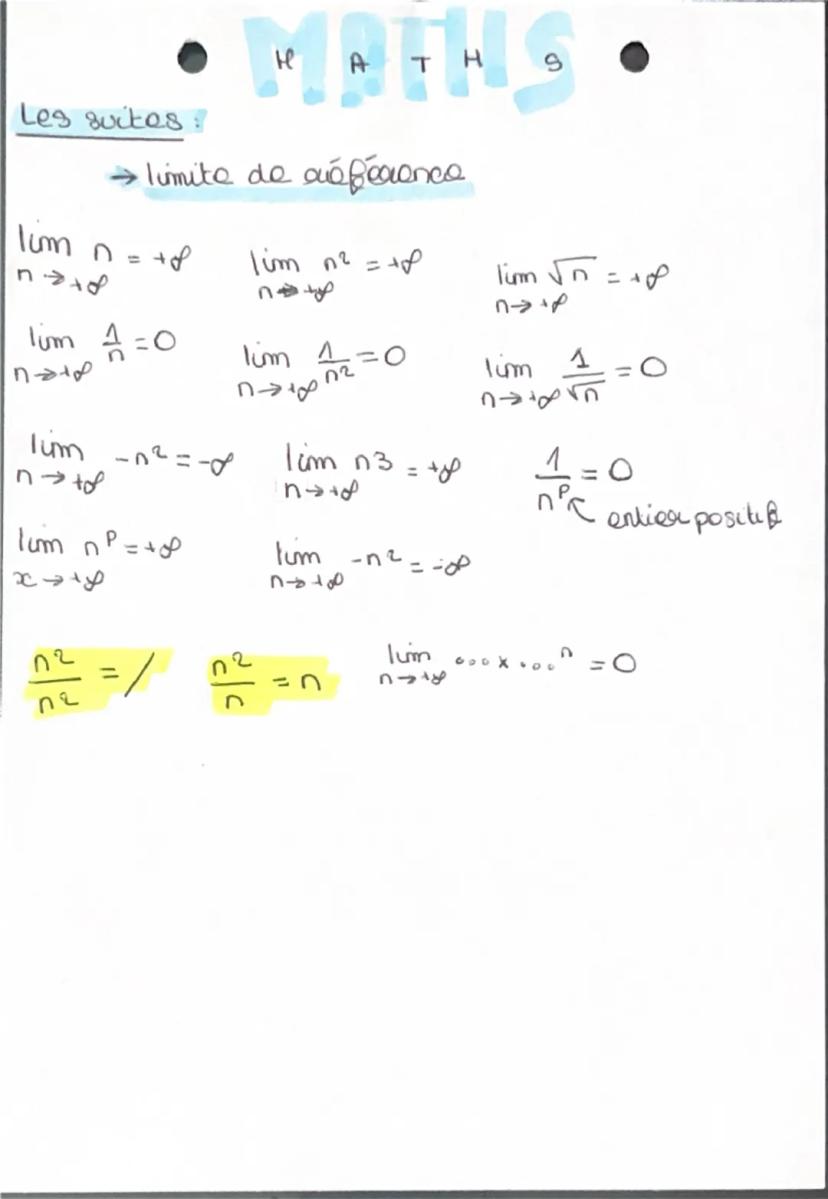 MATHS
Les suites :
→ limite de référence
lim n→+∞ n = +∞   lim n→+∞ n² = +∞   lim n→+∞ √n = +∞
lim n→+∞ 1/n = 0   lim n→+∞ 1/n² = 0   lim n→+∞ 1/√n = 0
lim n→+∞ -n² = -∞   lim n→+∞ n3 = +∞   1/n^p = 0
entier positif
lim x→+∞ n^p = +∞   lim n→+∞ -n² = -∞
n²/n² = /   n²/n = n   lim n→+∞ ... x ...^n = 0